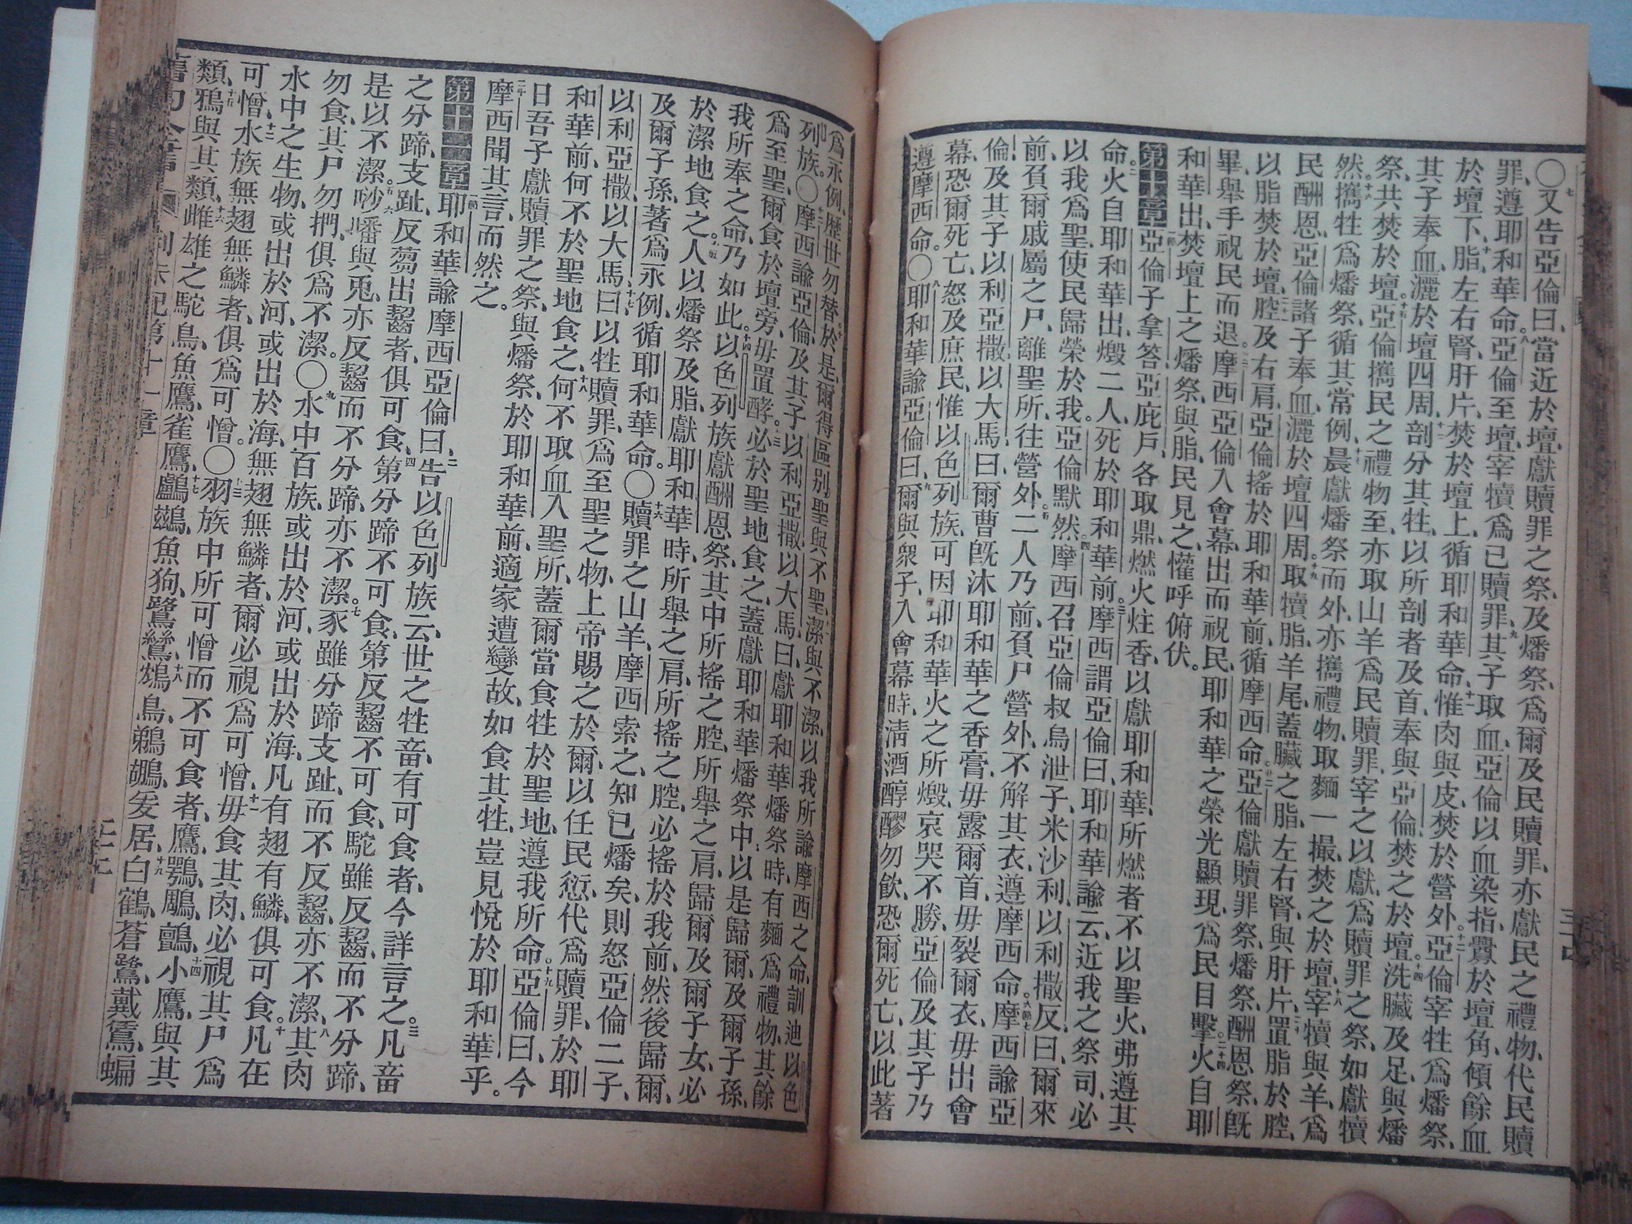 ○又告亞倫曰、當近於壇、獻贖罪之祭、及燔祭、爲爾及民贖罪、亦獻民之禮物、代民贖
罪、遵耶和華命。亞倫至壇、宰犢爲己贖罪、其子取血、亞倫以血染指、釁於壇角、傾餘血
於壇下、脂左右腎、肝片、焚於壇上、循耶和華命、惟肉與皮、焚於營外。亞倫宰牲爲燔祭、
其子奉血、灑於壇四周、剖分其牲、以所剖者及首、奉與亞倫、焚之於壇。洗臟及足、與燔
祭共焚於壇。亞倫攜民之禮物至、亦取山羊爲民贖罪、宰之以獻、爲贖罪之祭、如獻犢
然、攜牲爲燔祭、循其常例、晨獻燔祭而外、亦攜禮物、取麵一撮、焚之於壇、宰犢與羊、爲
民酬恩、亞倫諸子奉血、灑於壇四周。取犢脂、羊尾、蓋臟之脂、左右腎、與肝片、置脂於腔、
以脂焚於壇、腔及右肩、亞倫搖於耶和華前、循摩西命。亞倫獻贖罪祭、燔祭、酬恩祭、旣
畢、舉手祝民而退。摩西亞倫入會幕、出而祝民、耶和華之榮光顯現、爲民目擊、火自耶
和華出、焚壇上之燔祭、與脂、民見之、懽呼俯伏。
第十章 亞倫子拿答亞庇戶各取鼎燃火炷香、以獻耶和華、所燃者不以聖火、弗遵其
命。火自耶和華出、燬二人、死於耶和華前。摩西謂亞倫曰、耶和華諭云、近我之祭司、必
以我爲聖、使民歸榮於我。亞倫默然。摩西召亞倫叔烏泄子米沙利、以利撒反曰、爾來
前、負爾戚屬之尸、離聖所、往營外。二人乃前、負尸營外、不解其衣、遵摩西命。摩西諭亞
倫及其子以利亞撒以大馬曰、爾曹旣沐耶和華之香膏、毋露爾首、毋裂爾衣、毋出會
幕、恐爾死亡、怒及庶民、惟以色列族可因耶和華火之所燬、哀哭不勝、亞倫及其子乃
遵摩西命。○耶和華諭亞倫曰、爾與衆子、入會幕時、清酒醇醪勿飲、恐爾死亡、以此著
爲永例、歷世勿替、於是爾得區別聖與不聖、潔與不潔、以我所諭摩西之命、訓迪以色
列族。○摩西諭亞倫及其子以利亞撒以大馬曰、獻耶和華燔祭時、有麵爲禮物、其餘
爲至聖、爾食於壇旁、毋置酵。必於聖地食之、蓋獻耶和華燔祭中、以是歸爾、及爾子孫、
我所奉之命、乃如此。以色列族獻酬恩祭、其中所搖之腔、所舉之肩、歸爾及爾子女、必
於潔地食之。人以燔祭及脂、獻耶和華時、所舉之肩、所搖之腔、必搖於我前、然後歸爾、
及爾子孫、著爲永例、循耶和華命。○贖罪之山羊、摩西索之、知已燔矣、則怒亞倫二子、
以利亞撒以大馬曰、以牲贖罪、爲至聖之物、上帝賜之於爾、以任民愆、代爲贖罪、於耶
和華前、何不於聖地食之、何不取血入聖所、蓋爾當食牲於聖地、遵我所命。亞倫曰、今
日吾子獻贖罪之祭、與燔祭、於耶和華前、適家遭變故、如食其牲、豈見悅於耶和華乎。
摩西聞其言而然之。
第十一章 耶和華諭摩西亞倫曰、告以色列族云、世之牲畜、有可食者、今詳言之。凡畜
之分蹄、支趾、反芻出齝者、俱可食、第分蹄不可食、第反齝不可食、駝雖反齝、而不分蹄、
是以不潔。䂪𤡩與兎亦反齝、而不分蹄、亦不潔。豕雖分蹄支趾、而不反齝、亦不潔、其肉
勿食、其尸勿捫、俱爲不潔。○水中百族、或出於河、或出於海、凡有翅有鱗、俱可食。凡在
水中之生物、或出於河、或出於海、無翅無鱗者、爾必視爲可憎、毋食其肉、必視其尸爲
可憎、水族無翅無鱗者、俱爲可憎。○羽族中所可憎而不可食者、鷹、鶚、鵰、鸇、小鷹、與其
類、鴉與其類、雌雄之駝鳥、魚鷹、雀鷹、鸕鷀、魚狗、鷺、鸞、鴆、鳥、鵜鶘、爰居、白鶴、蒼鷺、戴鵀、蝙
利未記第十一章